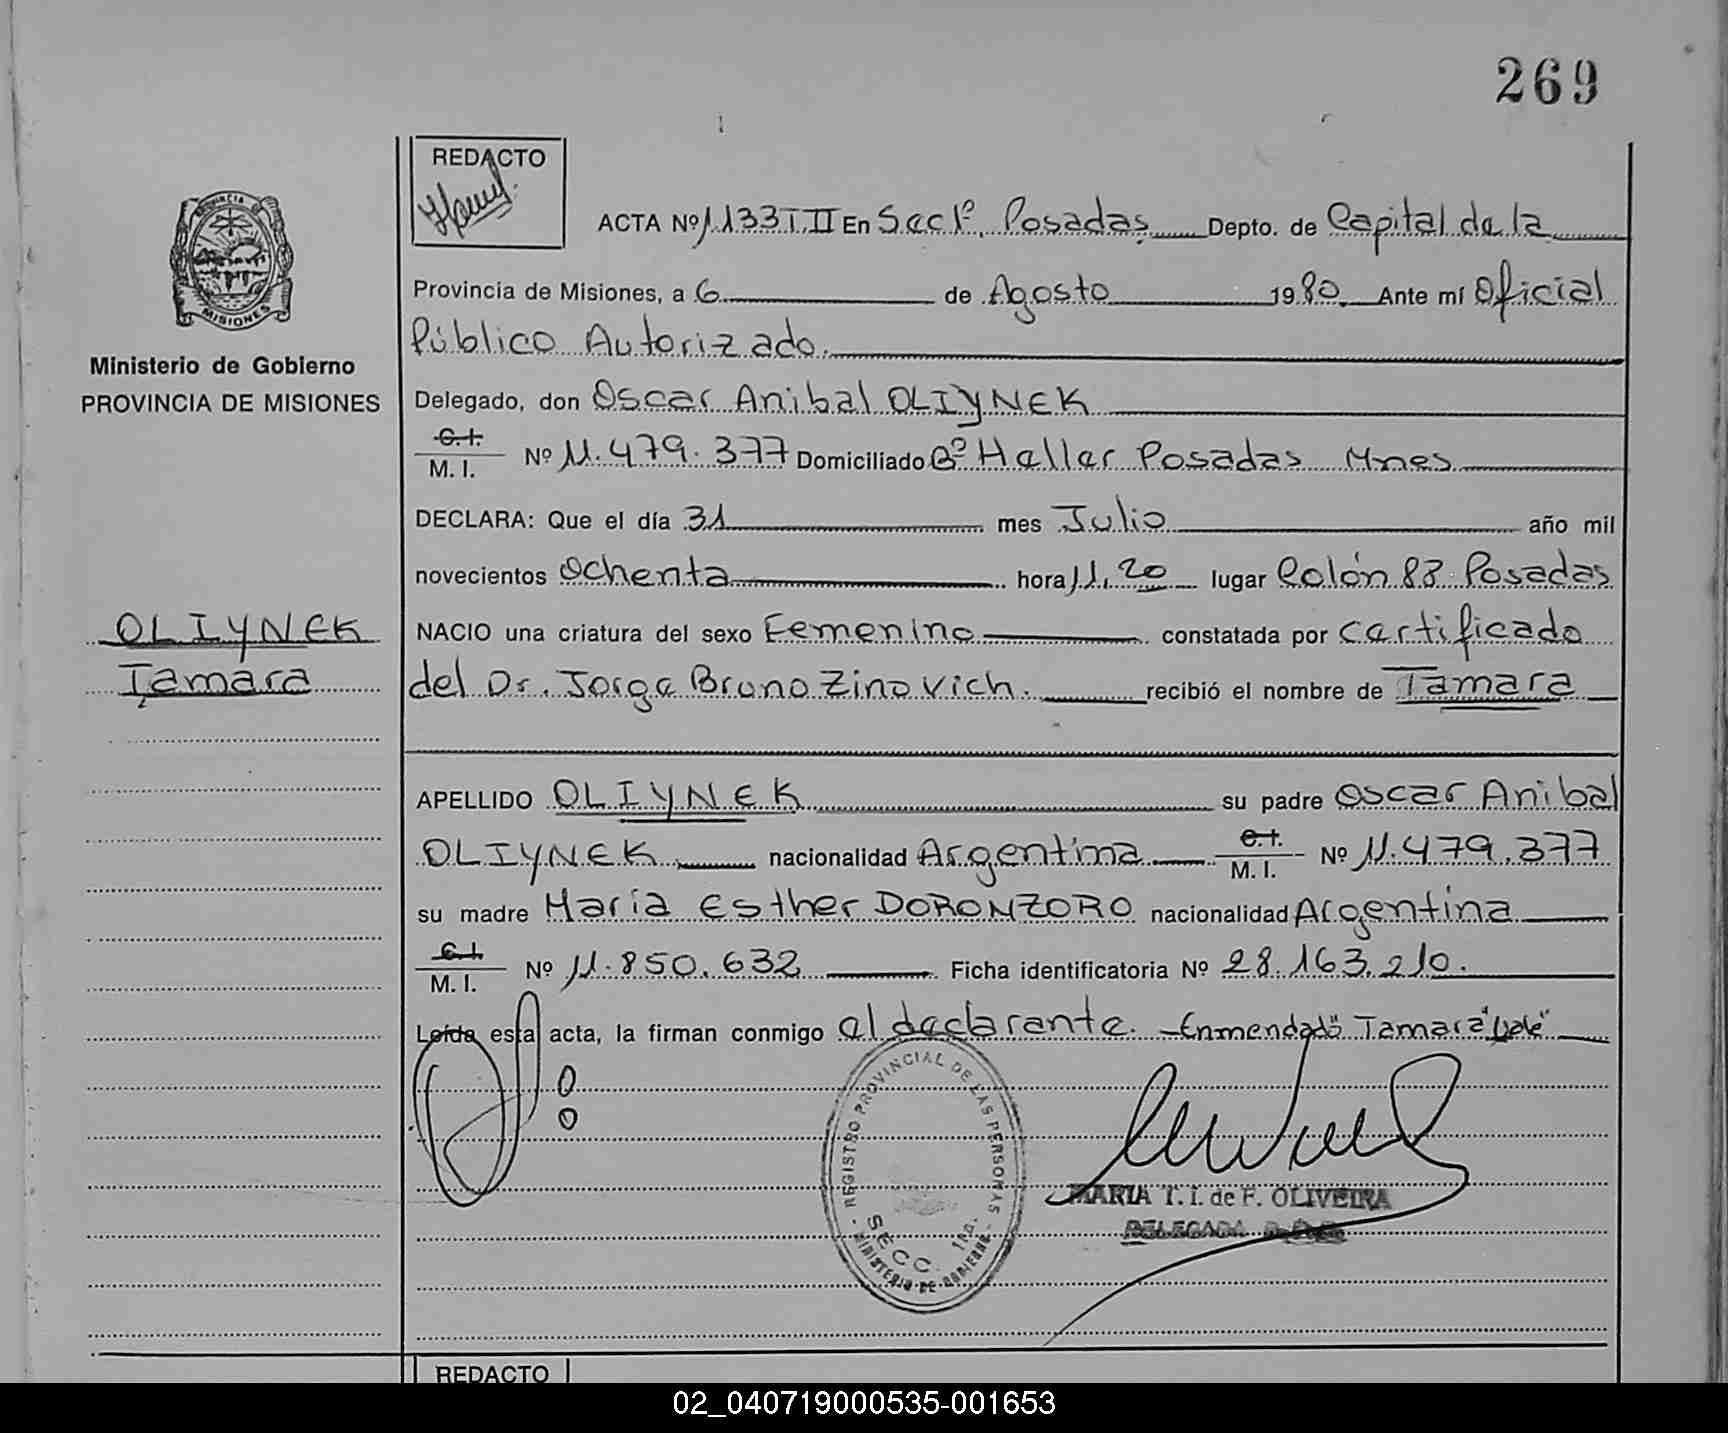 269
REDACTO
ACTA Nº 1133 T. II En Secc 1º. Posadas Depto. de Capital de la
Provincia de Misiones, a 6 de Agosto 1980 Ante mí Oficial
Público Autorizado.
Ministerio de Gobierno
PROVINCIA DE MISIONES
Delegado, don Oscar Anibal OLIYNEK
C.I.
M. I. Nº 11.479.377 Domiciliado Bº Haller Posadas Mnes
DECLARA: Que el día 31 mes Julio año mil
novecientos ochenta hora 11,20 lugar Colón 83 Posadas
OLIYNEK
Tamara
NACIO una criatura del sexo Femenino constatada por certificado
del Dr. Jorge Bruno Zinovich. recibió el nombre de Tamara
APELLIDO OLIYNEK su padre Oscar Anibal
OLIYNEK nacionalidad Argentina C.I. M. I. Nº 11.479.377
su madre Maria Esther DORONZORO nacionalidad Argentina
C.I.
M. I. Nº 11.850.632 Ficha identificatoria Nº 28.163.210.
Leída esta acta, la firman conmigo el declarante. -Enmendado "Tamara" Vale"
REGISTRO PROVINCIAL DE LAS PERSONAS
SECC. 1ra.
MINISTERIO DE GOBIERNO
MARIA T. I. de F. OLIVEIRA
DELEGADA
REDACTO
02_040719000535-001653